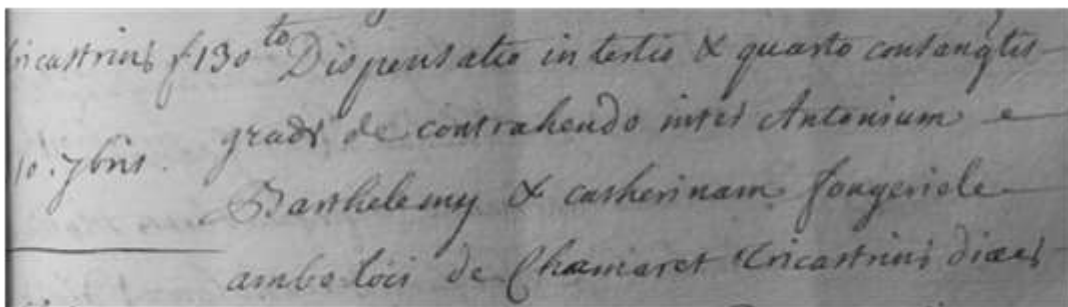 Tricastrins f 130 to Dispensatio in tertio & quarto consangtis
gradi de contrahendo inter Antonium
10. 7bris. Barthelemy & catherinam fougeirole
ambo loci de Chamaret Tricastrins diœces